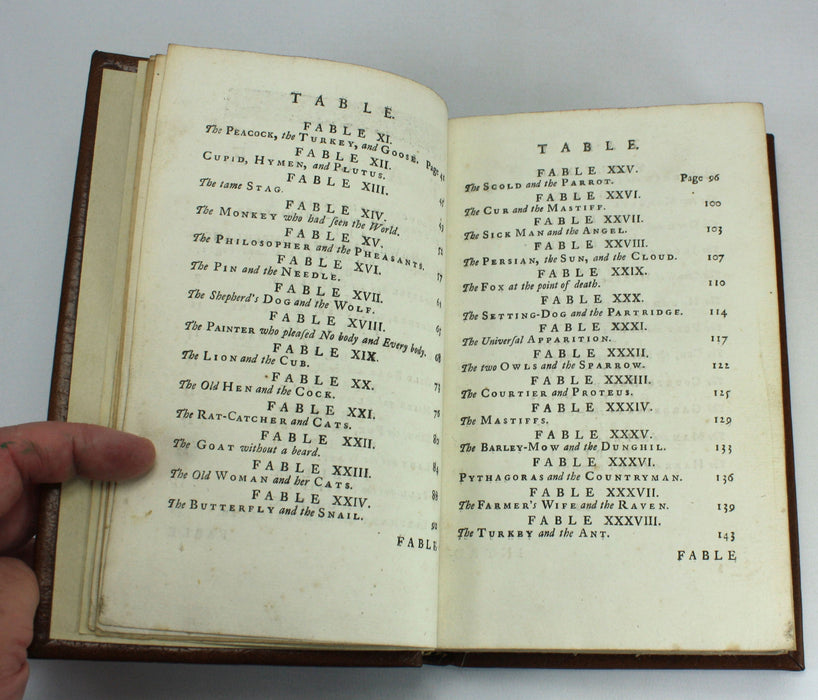 TABLE.
FABLE XI.
The PEACOCK, the TURKEY, and GOOSE. Page
FABLE XII.
CUPID, HYMEN, and PLUTUS.
FABLE XIII.
The tame STAG.
FABLE XIV.
The MONKEY who had ſeen the World.
FABLE XV.
The PHILOSOPHER and the PHEASANTS.
FABLE XVI.
The PIN and the NEEDLE. 57
FABLE XVII.
The Shepherd's DOG and the WOLF. 61
FABLE XVIII.
The PAINTER who pleaſed No body and Every body. 65
FABLE XIX. 68
The LION and the CUB.
FABLE XX. 73
The Old HEN and the COCK.
FABLE XXI. 76
The RAT-CATCHER and CATS.
FABLE XXII. 80
The GOAT without a beard.
FABLE XXIII. 84
The Old WOMAN and her CATS.
FABLE XXIV. 88
The BUTTERFLY and the SNAIL.
92
FABLE
TABLE.
FABLE XXV.
The SCOLD and the PARROT. Page 96
FABLE XXVI.
The CUR and the MASTIFF. 100
FABLE XXVII.
The SICK MAN and the ANGEL. 103
FABLE XXVIII.
The PERSIAN, the SUN, and the CLOUD. 107
FABLE XXIX.
The FOX at the point of death. 110
FABLE XXX.
The SETTING-DOG and the PARTRIDGE. 114
FABLE XXXI.
The Univerſal APPARITION. 117
FABLE XXXII.
The two OWLS and the SPARROW. 122
FABLE XXXIII.
The COURTIER and PROTEUS. 125
FABLE XXXIV.
The MASTIFFS. 129
FABLE XXXV.
The BARLEY-MOW and the DUNGHIL. 133
FABLE XXXVI.
PYTHAGORAS and the COUNTRYMAN. 136
FABLE XXXVII.
The FARMER'S WIFE and the RAVEN. 139
FABLE XXXVIII.
The TURKEY and the ANT. 143
FABLE